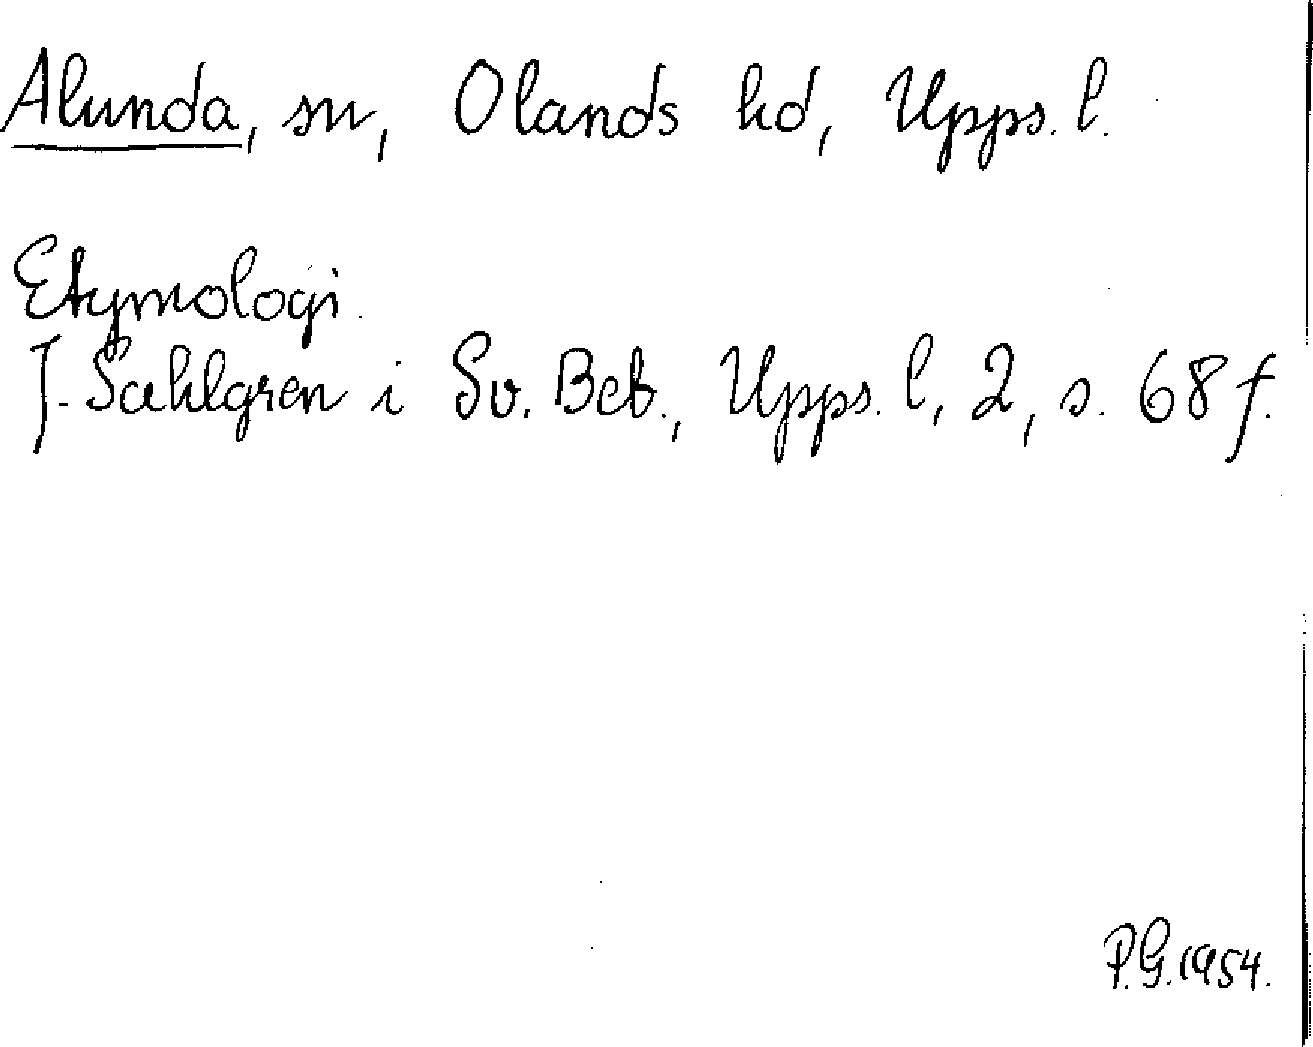 Alunda, sn, Olands hd, Upps. l.
Etymologi.
J. Sahlgren i Sv. Beb., Upps. l, 2, s. 68 f.
P.G. 1954.